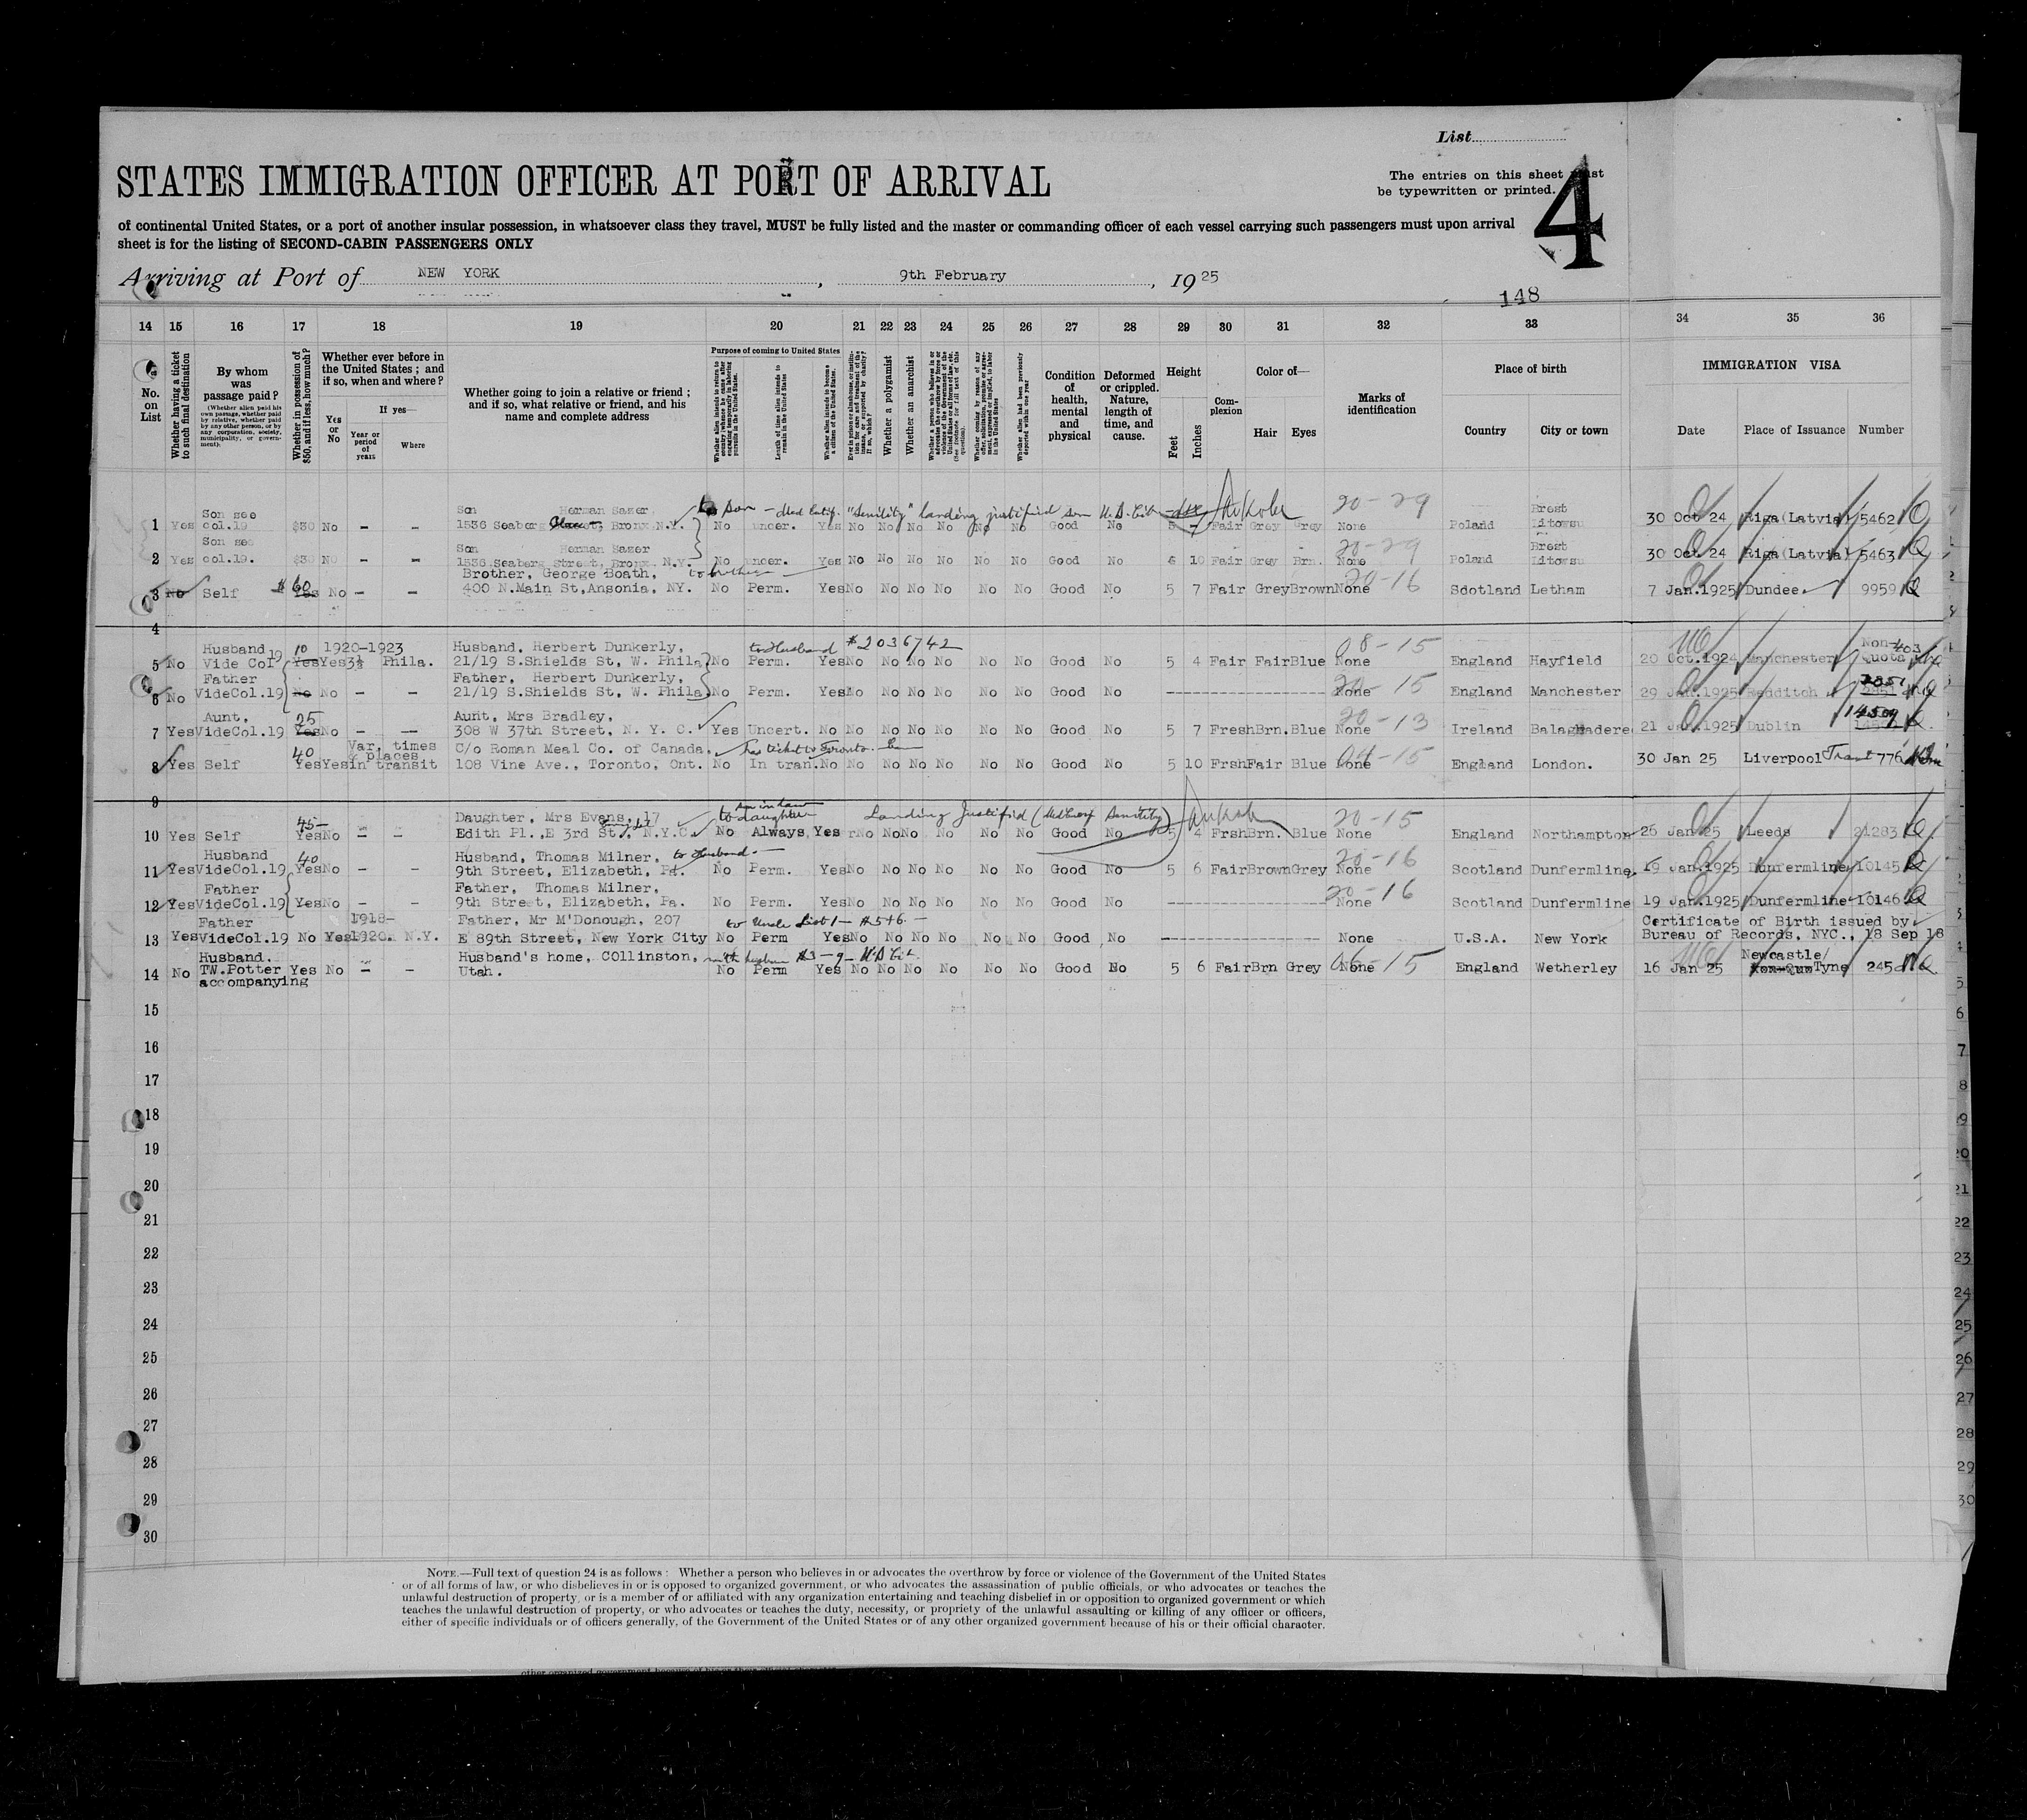 List
STATES IMMIGRATION OFFICER AT PORT OF ARRIVAL
The entries on this sheet must
be typewritten or printed.
4
of continental United States, or a port of another insular possession, in whatsoever class they travel, MUST be fully listed and the master or commanding officer of each vessel carrying such passengers must upon arrival
sheet is for the listing of SECOND-CABIN PASSENGERS ONLY
Arriving at Port of NEW YORK, 9th February, 1925
148
14 15 16 17 18 19 20 21 22 23 24 25 26 27 28 29 30 31 32 33 34 35 36
No. on List
Whether having a ticket to such final destination
By whom was passage paid?
(Whether alien paid his own passage, whether paid by relative, whether paid by any other person, or by any corporation, society, municipality, or government).
Whether in possession of $50, and if less, how much?
Whether ever before in the United States; and if so, when and where?
Yes or No
If yes—
Year or period of years
Where
Whether going to join a relative or friend; and if so, what relative or friend, and his name and complete address
Purpose of coming to United States
Length of time alien intends to remain in the United States
Whether alien intends to become a citizen of the United States.
Whether a polygamist
Whether an anarchist
Condition of health, mental and physical
Deformed or crippled. Nature, length of time, and cause.
Height
Feet
Inches
Complexion
Color of—
Hair Eyes
Marks of identification
Place of birth
Country City or town
IMMIGRATION VISA
Date Place of Issuance Number
Son see Son Herman Sazer to son - Med Certif. "Senility" landing justified son U.S. Cit. 20-29 Brest
1 Yes col.19 $30 No - - 1536 Seaberg Bronx N.Y. No uncer. Yes No No No No No No Good No 5 7 Fair Grey Grey None Poland Litowsu 30 Oct 24 Riga(Latvia) 5462
Son see Son Herman Sazer 20-29 Brest
2 Yes col.19. $30 No - - 1536 Seaberg Street, Bronx N.Y. No uncer. Yes No No No No No No Good No 10 Fair Grey Brn. None Poland Litowsu 30 Oct 24 Riga(Latvia) 5463
$60 Brother, George Boath, to brother 20-16
3 No Self Yes No - - 400 N.Main St,Ansonia, NY. No Perm. Yes No No No No No No Good No 5 7 Fair Grey Brown None Scotland Letham 7 Jan.1925 Dundee 9959
4
Husband 10 1920-1923 Husband, Herbert Dunkerly, to Husband #2036742 08-15 Non- 403
5 No Vide Col 19 Yes Yes 3½ Phila. 21/19 S.Shields St, W. Phila No Perm. Yes No No No No No No Good No 5 4 Fair Fair Blue None England Hayfield 20 Oct.1924 Manchester Quota
Father Father, Herbert Dunkerly, 20-15
6 No VideCol.19 No No - - 21/19 S.Shields St, W. Phila No Perm. Yes No No No No No No Good No None England Manchester 29 Jan.1925 Redditch
Aunt, 25 Aunt, Mrs Bradley, 20-13 14509
7 Yes VideCol.19 Yes No - - 308 W 37th Street, N. Y. C. Yes Uncert. No No No No No No No Good No 5 7 Fresh Brn. Blue None Ireland Balaghadere 21 Jan.1925 Dublin
40 Var. times & places C/o Roman Meal Co. of Canada. has ticket to Toronto.
8 Yes Self Yes Yes in transit 108 Vine Ave., Toronto, Ont. No In tran. No No No No No No No Good No 5 10 Frsh Fair Blue None England London. 30 Jan 25 Liverpool Trans 776
9
45- Daughter, Mrs Evans, 17 son in law to daughter Landing Justified (Senility) 20-15
10 Yes Self Yes No - - Edith Pl.,E 3rd St., N.Y.C. No Always Yes No No No No No No Good No 5 4 Frsh Brn. Blue None England Northampton 26 Jan 25 Leeds 21283
Husband 40 Husband, Thomas Milner, to husband - 20-16
11 Yes VideCol.19 Yes No - - 9th Street, Elizabeth, Pa. No Perm. Yes No No No No No No Good No 5 6 Fair Brown Grey None Scotland Dunfermline. 19 Jan.1925 Dunfermline 10145
Father Father, Thomas Milner, 20-16
12 Yes VideCol.19 Yes No - - 9th Street, Elizabeth, Pa. No Perm. Yes No No No No No No Good No None Scotland Dunfermline 19 Jan.1925 Dunfermline 10146
Father 1918- Father, Mr M'Donough, 207 to Uncle List 1 - #5+6. - Certificate of Birth issued by
13 Yes VideCol.19 No Yes 1920. N.Y. E 89th Street, New York City No Perm Yes No No No No No No Good No None U.S.A. New York Bureau of Records, NYC., 18 Sep 18
Husband. Husband's home, COllinston, with husband #3-9- US Cit. 06-15 Newcastle/
14 No TW.Potter Yes No - - Utah. No Perm Yes No No No No No No Good No 5 6 Fair Brn Grey None England Wetherley 16 Jan 25 Tyne 245
accompanying
15
16
17
18
19
20
21
22
23
24
25
26
27
28
29
30
NOTE.—Full text of question 24 is as follows: Whether a person who believes in or advocates the overthrow by force or violence of the Government of the United States
or of all forms of law, or who disbelieves in or is opposed to organized government, or who advocates the assassination of public officials, or who advocates or teaches the
unlawful destruction of property, or is a member of or affiliated with any organization entertaining and teaching disbelief in or opposition to organized government or which
teaches the unlawful destruction of property, or who advocates or teaches the duty, necessity, or propriety of the unlawful assaulting or killing of any officer or officers,
either of specific individuals or of officers generally, of the Government of the United States or of any other organized government because of his or their official character.